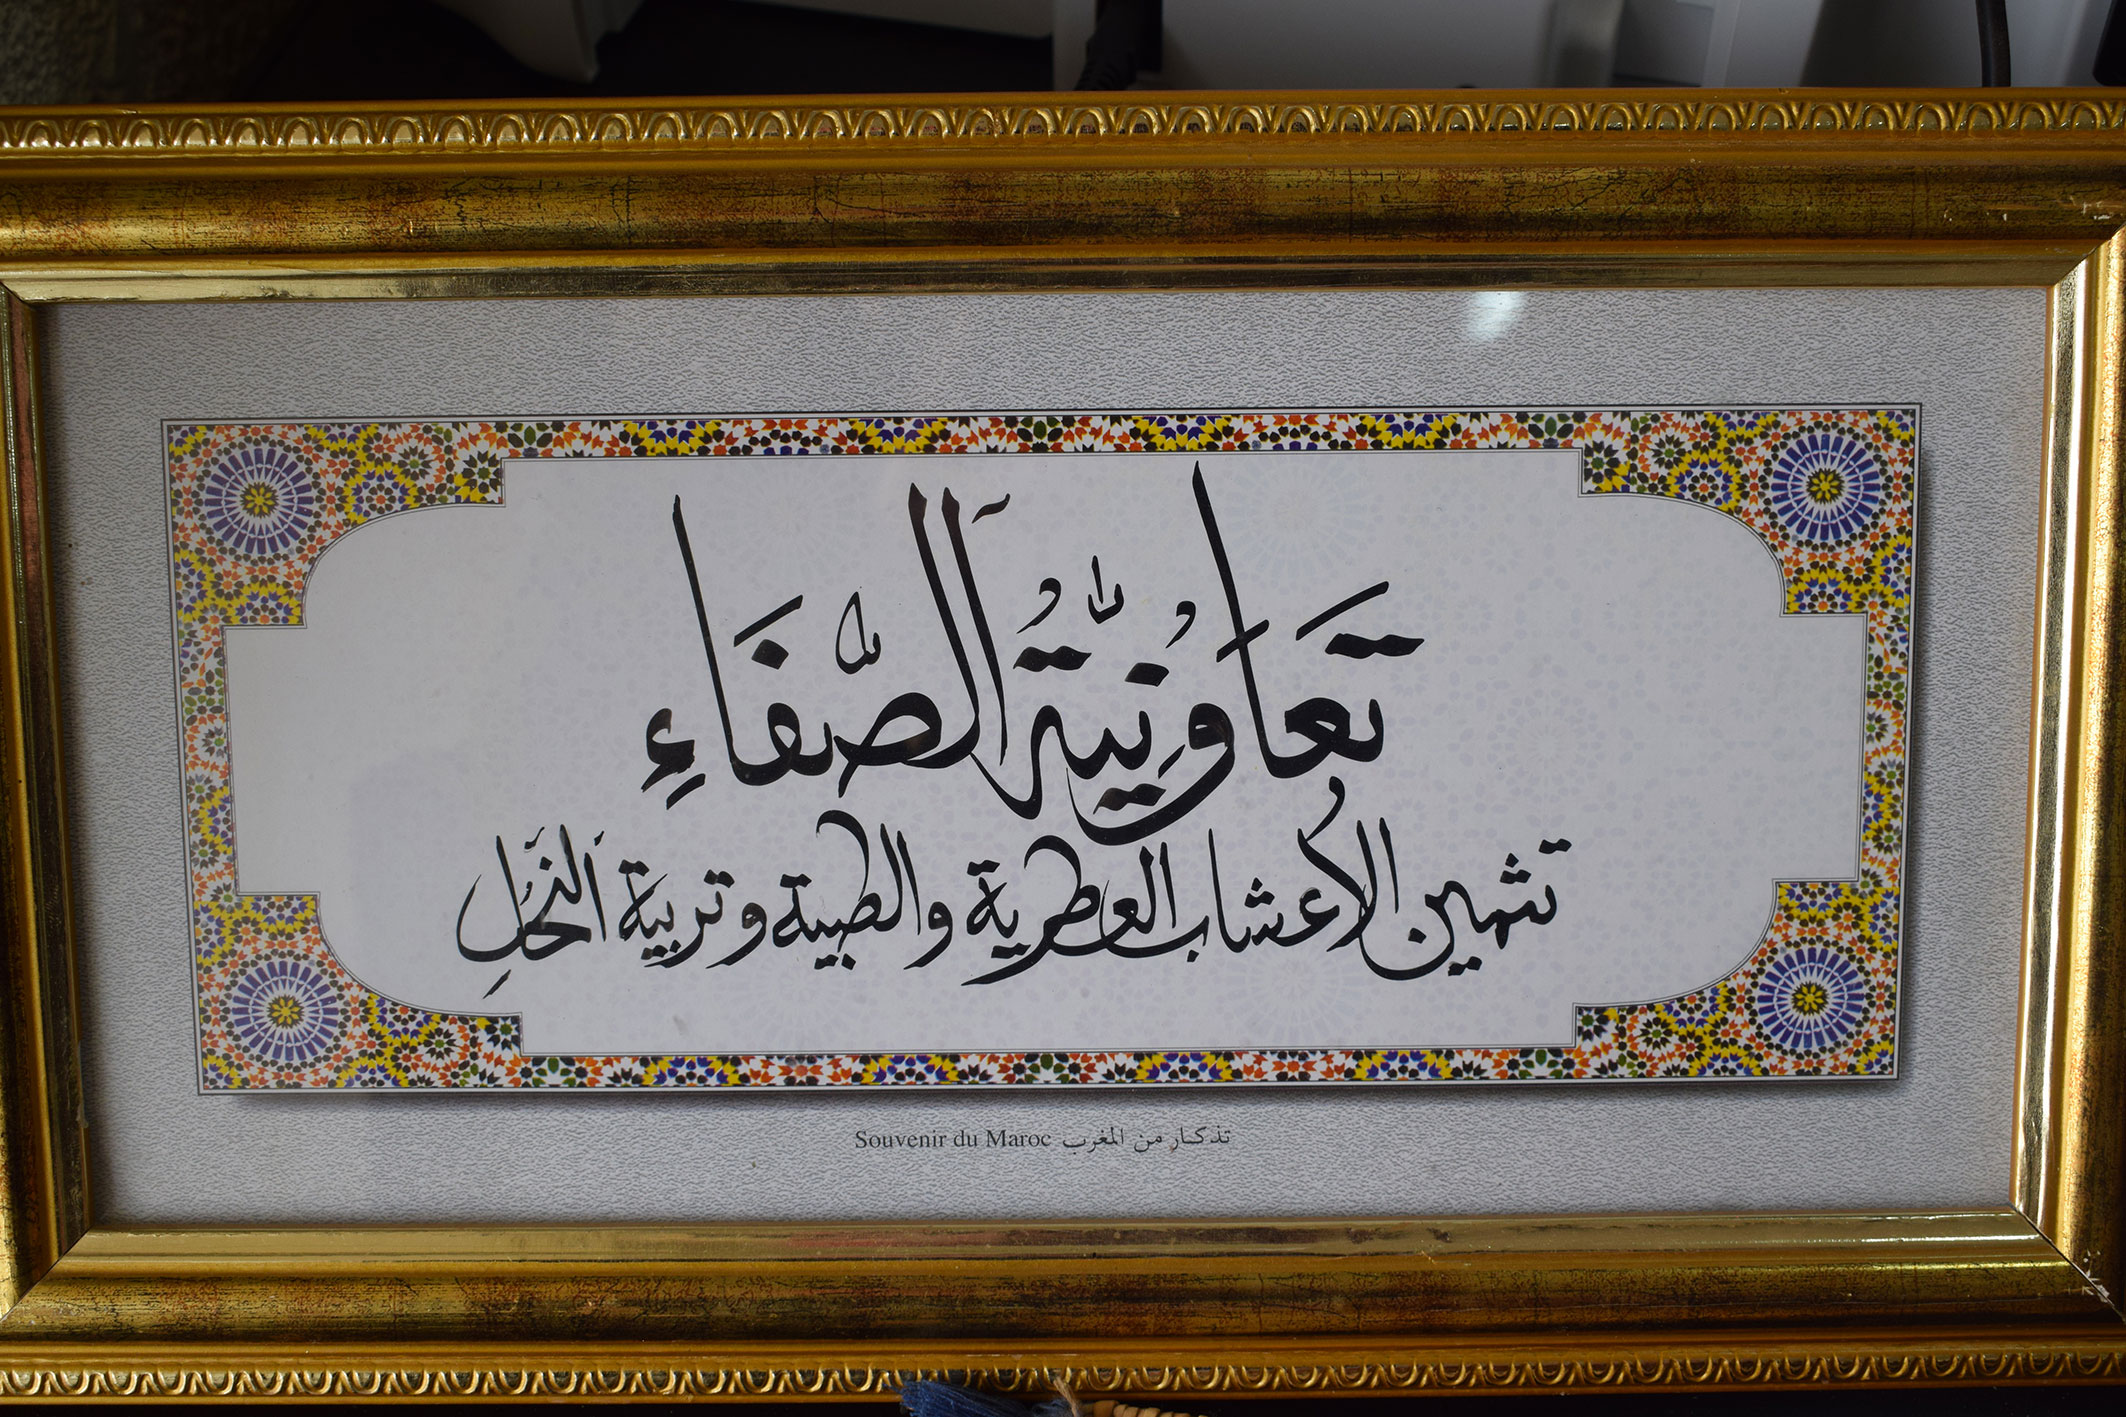 تَعَاوُنِيَّةُ الصَّفَاءِ
تثمين الأعشاب العطرية والطبية وتربية النَّحْلِ
Souvenir du Maroc تذكار من المغرب